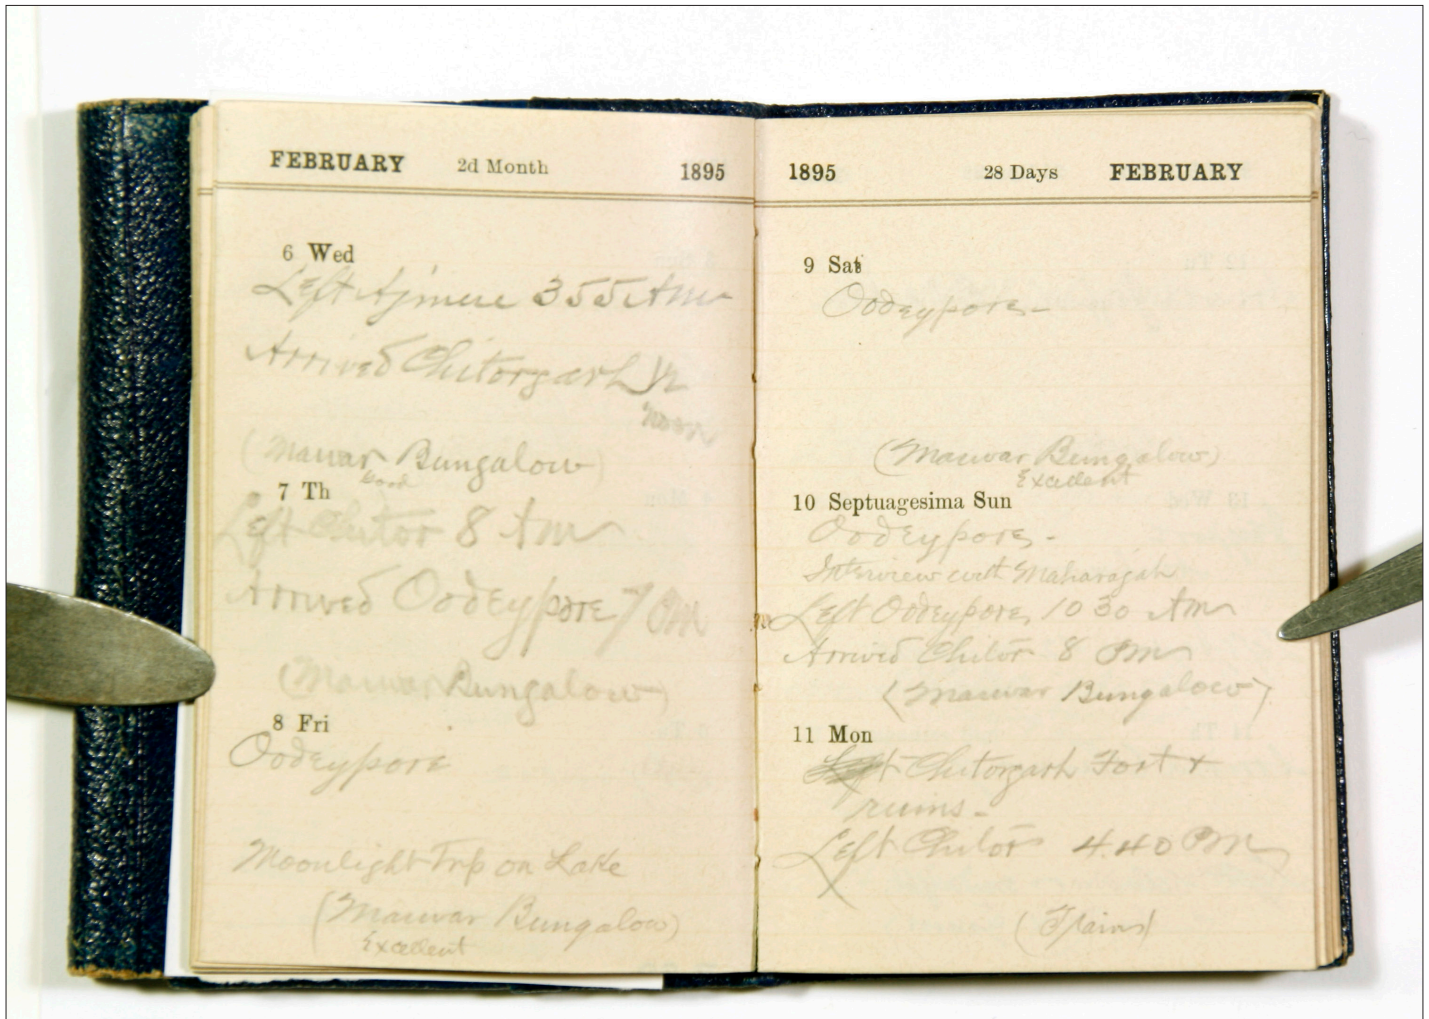 FEBRUARY 2d Month 1895
6 Wed
Left Ajmere 3 55 Am
Arrived Chitorgarh
Noon
(Marwar Bungalow)
Good
7 Th
Left Chitor 8 Am
Arrived Oodeypore 7 Pm
(Marwar Bungalow)
8 Fri
Oodeypore
Moonlight Trip on Lake
(Marwar Bungalow)
Excellent
1895 28 Days FEBRUARY
9 Sat
Oodeypore -
(Marwar Bungalow)
Excellent
10 Septuagesima Sun
Oodeypore -
Interview with Maharajah
Left Oodeypore 10 30 Am
Arrived Chitor 8 Pm
(Marwar Bungalow)
11 Mon
Chitorgarh Fort +
ruins -
Left Chitor 4.40 Pm
(Train)